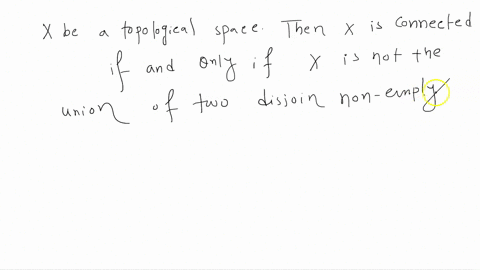 X be a topological space. Then X is connected
if and only if X is not the
union of two disjoin non-empty